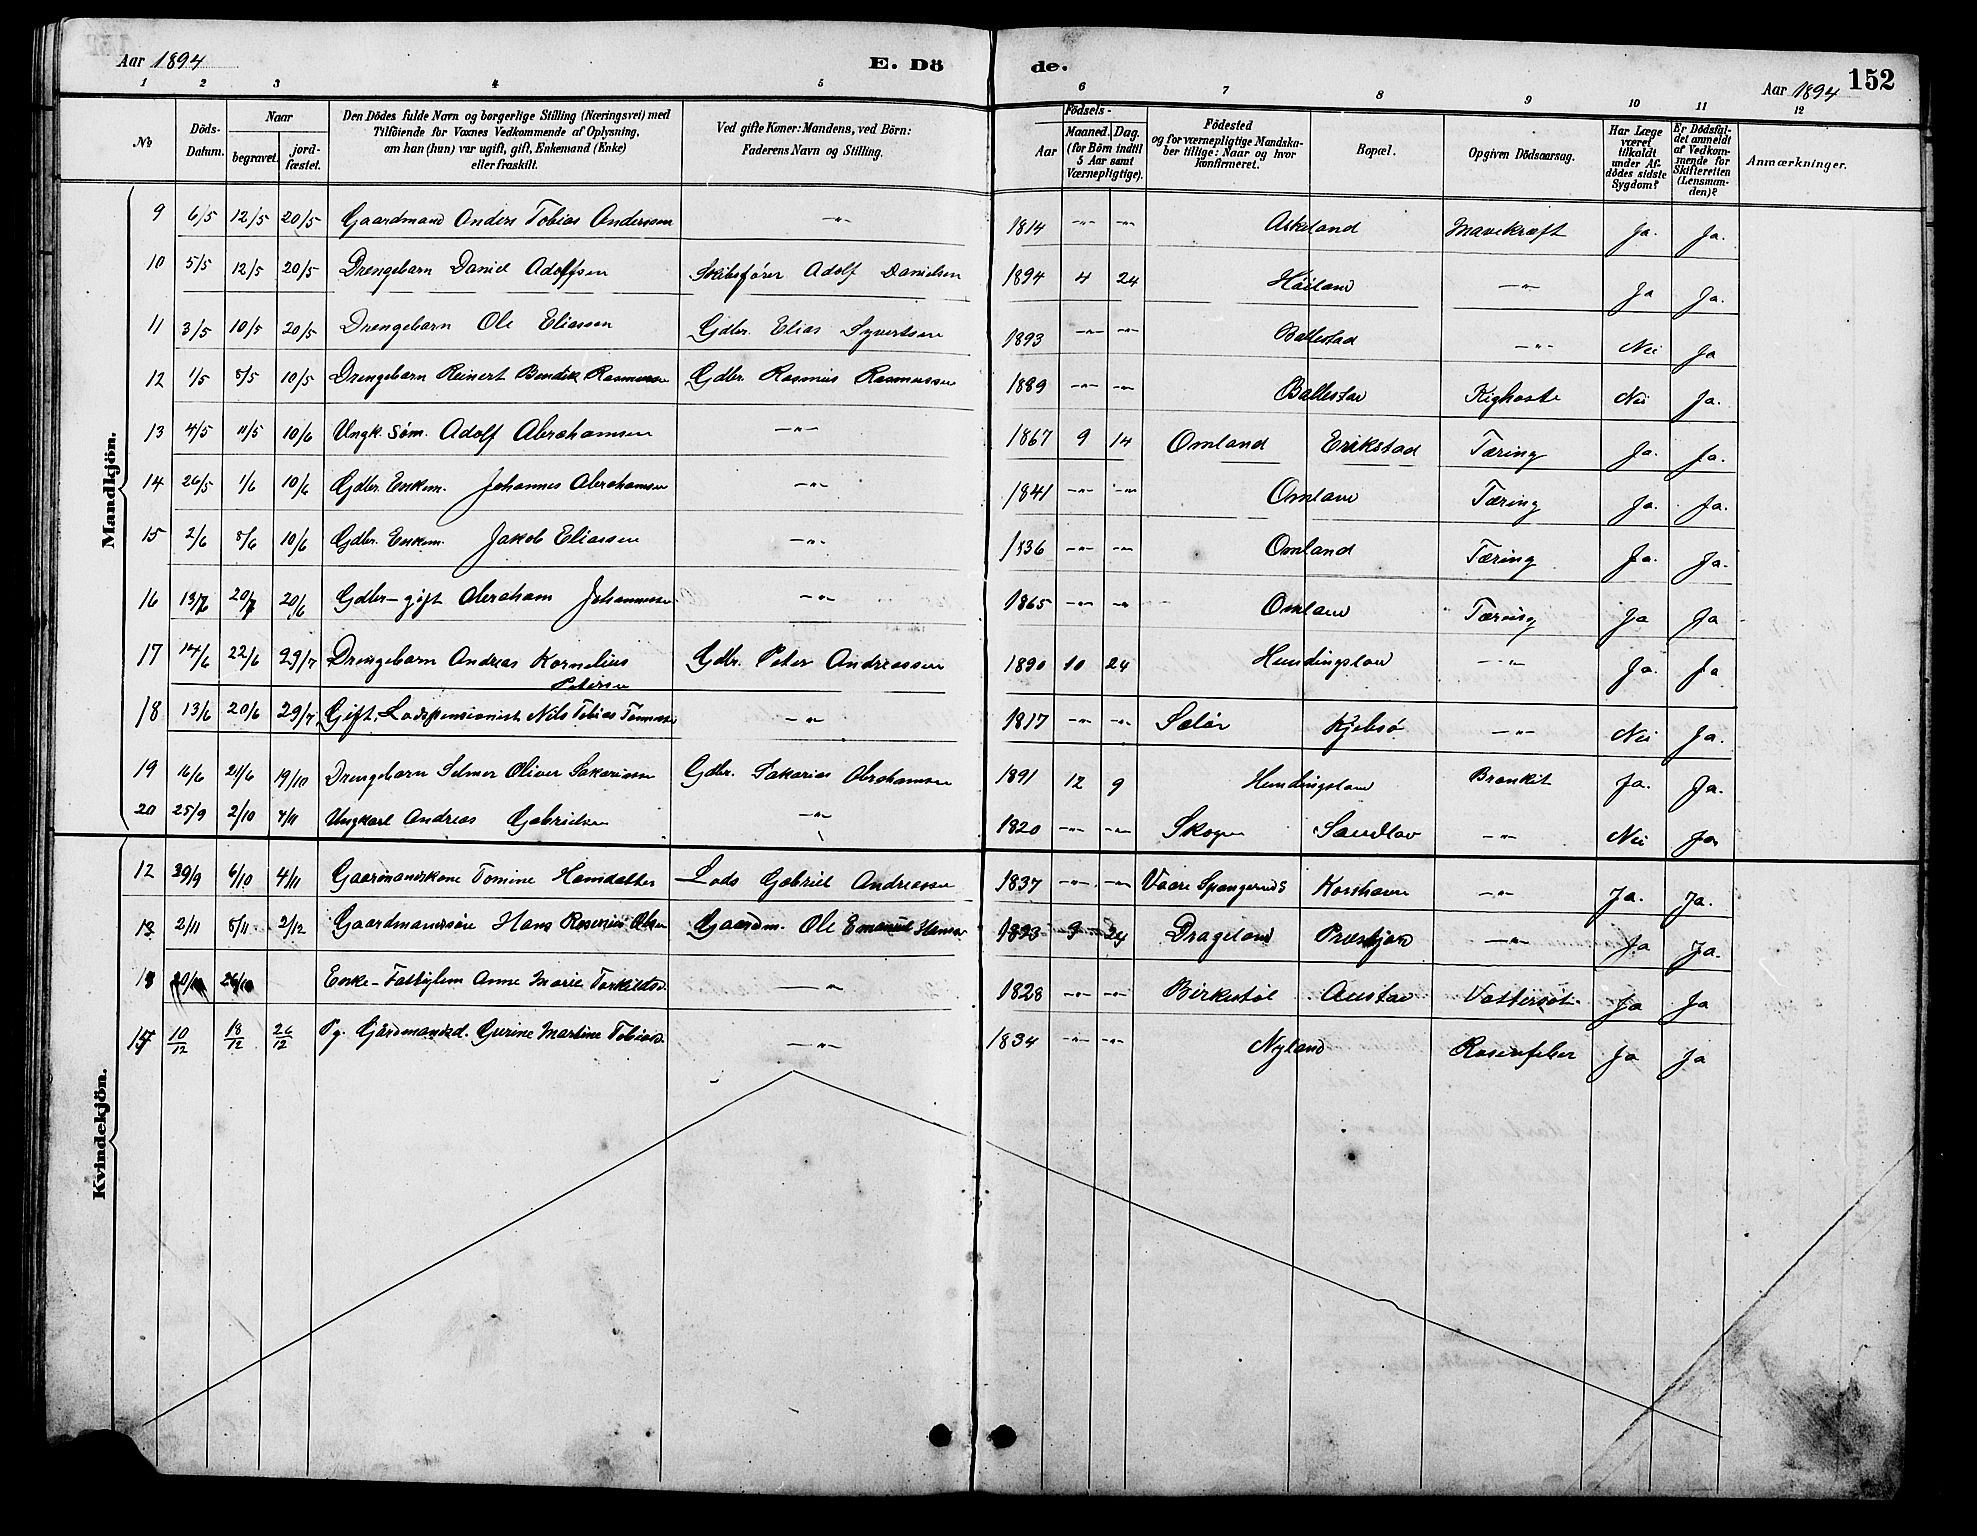 Aar 1894 E. Dö de. Aar 1894 152
1 2 3 4 5 6 7 8 9 10 11 12
No Döds-Datum. Naar begravet. jordfæstet. Den Dödes fulde Navn og borgerlige Stilling (Næringsvei) med Tilföiende for Voxnes Vedkommende af Oplysning, om han (hun) var ugift, gift, Enkemand (Enke) eller fraskilt. Ved gifte Koner: Mandens, ved Börn: Faderens Navn og Stilling. Födsels- Aar Maaned. Dag. (for Börn indtil 5 Aar samt Værnepligtige). Födested og for værnepligtige Mandskaber tillige: Naar og hvor konfirmeret. Bopæl. Opgiven Dödsaarsag. Har Læge været tilkaldt under Afdödes sidste Sygdom? Er Dödsfaldet anmeldt af Vedkommende for Skifteretten (Lensmanden)? Anmærkninger.
Mandkjön.
9 6/5 12/5 20/5 Gaardmand Anders Tobias Anderssen -"- 1814 -"- -"- Askeland Mavekræft Ja. Ja.
10 5/5 12/5 20/5 Drengebarn Daniel Adolfsen Skibsfører Adolf Danielsen 1894 4 24 Höiland -"- Ja Ja.
11 3/5 10/5 20/5 Drengebarn Ole Eliassen Gdbr. Elias Syvertsen 1893 -"- -"- Ballestad -"- Nei Ja
12 1/5 8/5 10/5 Drengebarn Reinert Bendik Rasmussen Gdbr. Rasmus Rasmussen 1889 -"- -"- Ballestad Kighoste Nei Ja.
13 4/5 11/5 10/6 Ungk. Søm. Adolf Abrahamsen -"- 1867 9 14 Omland Erikstad Tæring Ja. Ja.
14 26/5 1/6 10/6 Gdbr. Enkem. Johannes Abrahamsen -"- 1841 -"- -"- Omland Tæring Ja. Ja.
15 2/6 8/6 10/6 Gdbr. Enkem. Jakob Eliassen -"- 1836 -"- -"- Omland Tæring Ja. Ja.
16 13/6 20/6 Gdbr-gift Abraham Johannessen -"- 1865 -"- -"- Omland Tæring Ja Ja
17 14/6 22/6 29/7 Drengebarn Andreas Kornelius Petersen Gdbr. Peter Andreassen 1890 10 24 Hundingsland -"- Ja. Ja
18 13/6 20/6 29/7 Gift. Lodspensionist Nils Tobias Tønnessen -"- 1817 -"- -"- Selør Kjebsö -"- Nei Ja.
19 16/6 21/6 19/10 Drengebarn Selmer Oliver Sakariassen Gdbr. Sakarias Abrahamsen 1891 12 9 Hundingsland Bronkit Ja. Ja.
20 25/9 2/10 4/11 Ungkarl Andreas Gabrielsen -"- 1820 -"- -"- Skogen -"- Nei Ja
Kvindekjön.
12 29/9 6/10 4/11 Gaarmandskone Tomine Hansdatter Lods Gabriel Andreassen 1837 -"- -"- Vaare Spangereids Korshavn -"- Ja. Ja.
13 2/11 8/11 2/12 Gaardmandssøn Hans Olsen Gaardm. Ole Emanuel Hansen 1893 9 24 Drageland -"- Ja Ja.
26/10 Enke-Fattiglem Anne Marie Torkildsd. -"- 1828 -"- -"- Birkestöl Austad Vattersot Ja Ja
10/12 18/12 26/12 Pg. Gårdmandsd. Gurine Martine Tobiasd. -"- 1834 -"- -"- Nyland Rosenfeber Ja Ja